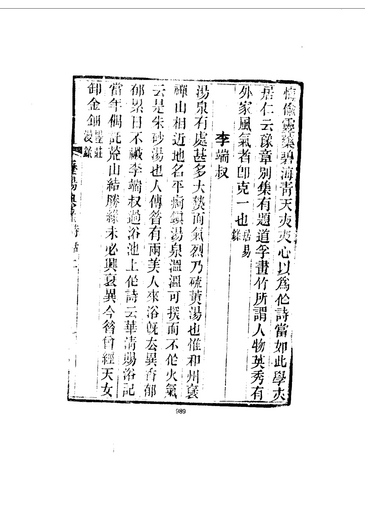 悔偷靈藥碧海青天夾夾心以爲作詩當如此學夾
居仁云豫章別集有題道孚畫竹所謂人物英秀有
外家風氣者卽克一也 居易錄
李端叔
湯泉有處甚多大熱而氣烈乃硫黃湯也惟和州
禪山相近地名平痾鎮湯泉溫溫可揬而不作火氣
云是朱砂湯也人傳昔有兩美人來浴旣去異香郁
郁累日不歇李端叔過浴池上作詩云華淸賜浴記
當年偶託荒山結勝緣未必興哀異今昔曾經天女
卸金鈿 漫錄
989